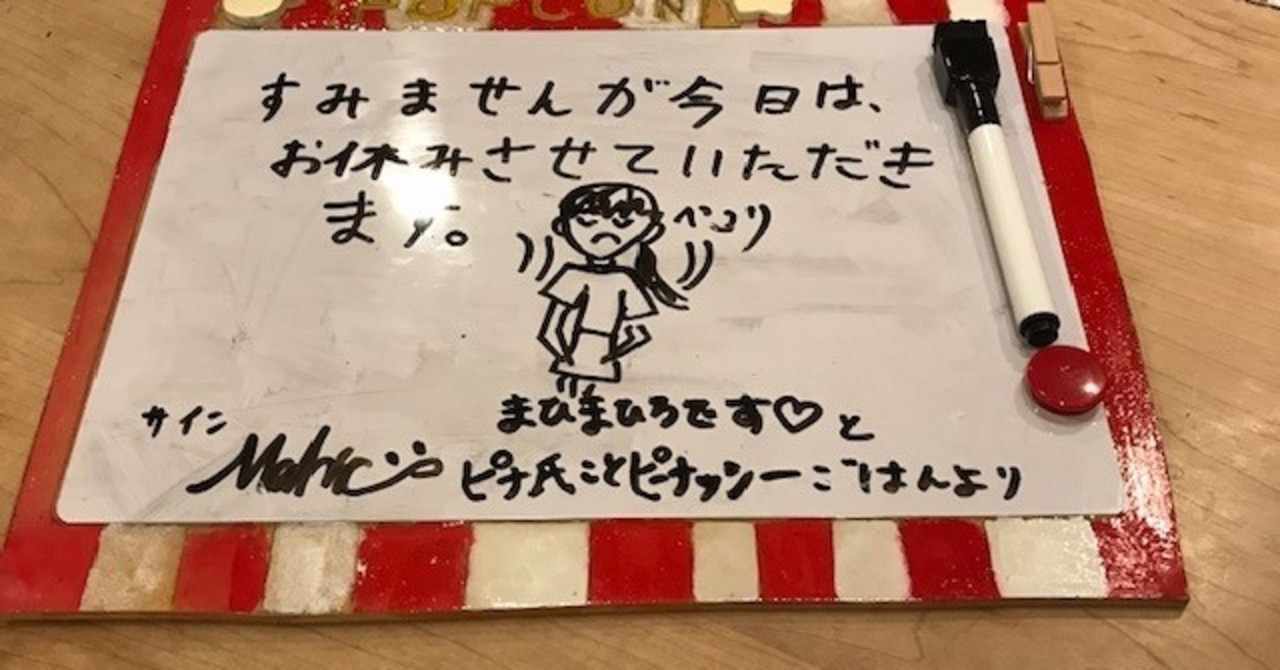 POPCORN
すみませんが今日は、
お休みさせていただき
ます。
ペコリ
サイン
まひまひろです♡と
ピナ氏ことピーナッシーごはんより